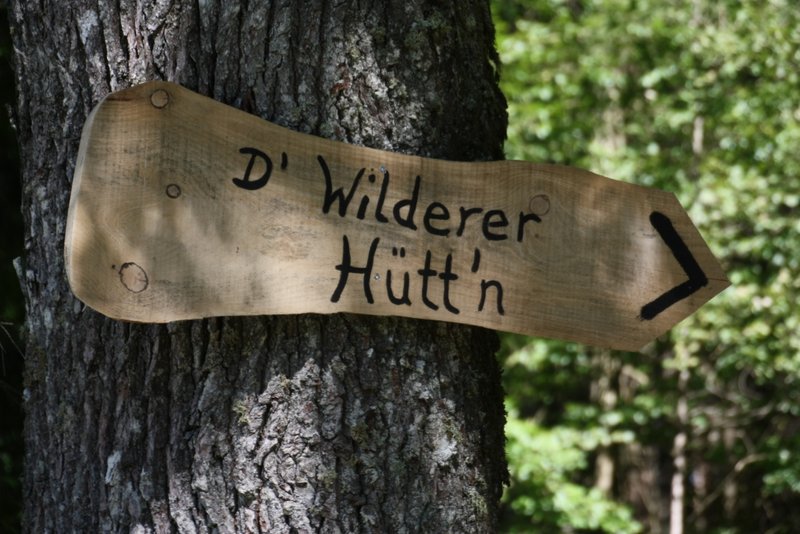 D' Wilderer
Hütt'n